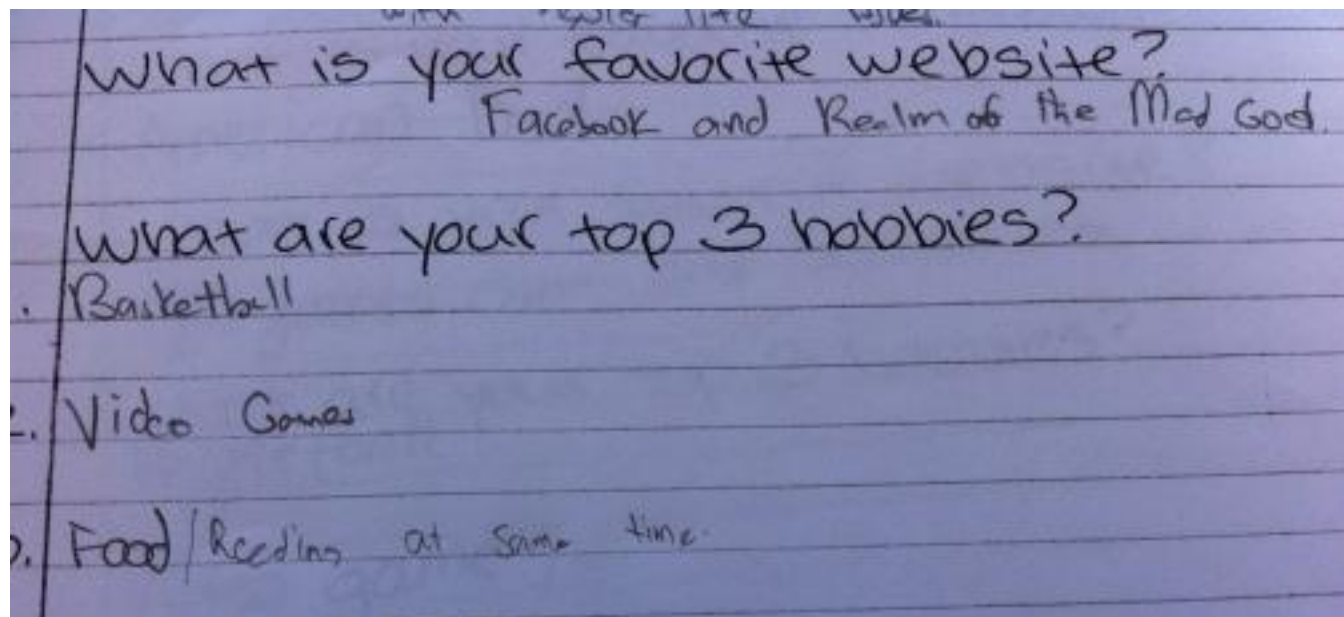 with life
What is your favorite website?
Facebook and Realm of the Mad God.
What are your top 3 hobbies?
. Basketball
2. Video Games
3. Food/Reading at same time.